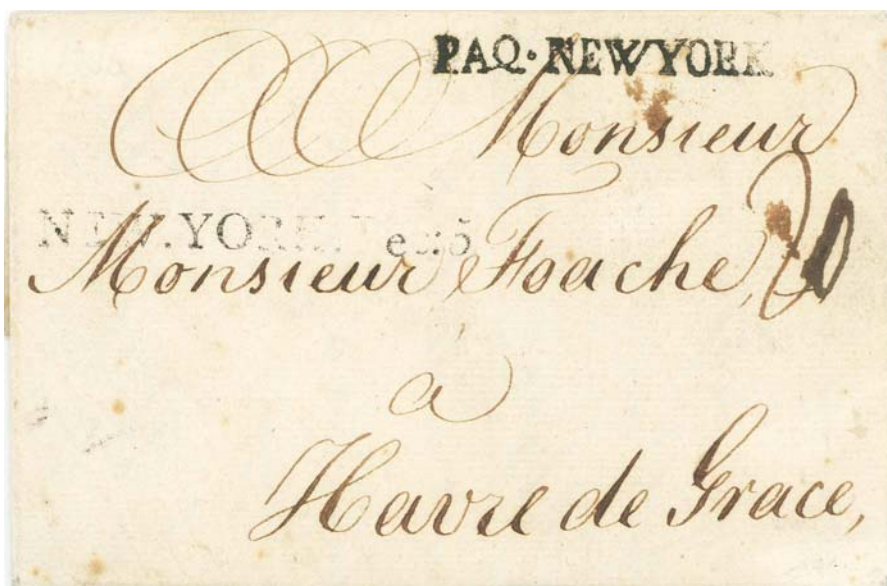 PAQ·NEW YORK
Monsieur
NEW.YORK
Monsieur Foache,
a
Havre de Grace,